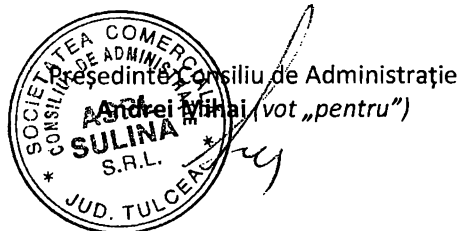 Președinte Consiliu de Administrație
Andrei Mihai (vot „pentru”)
SOCIETATEA COMERCIALE
CONSILIU DE ADMINISTRAȚIE
SULINA
S.R.L.
* JUD. TULCEA *